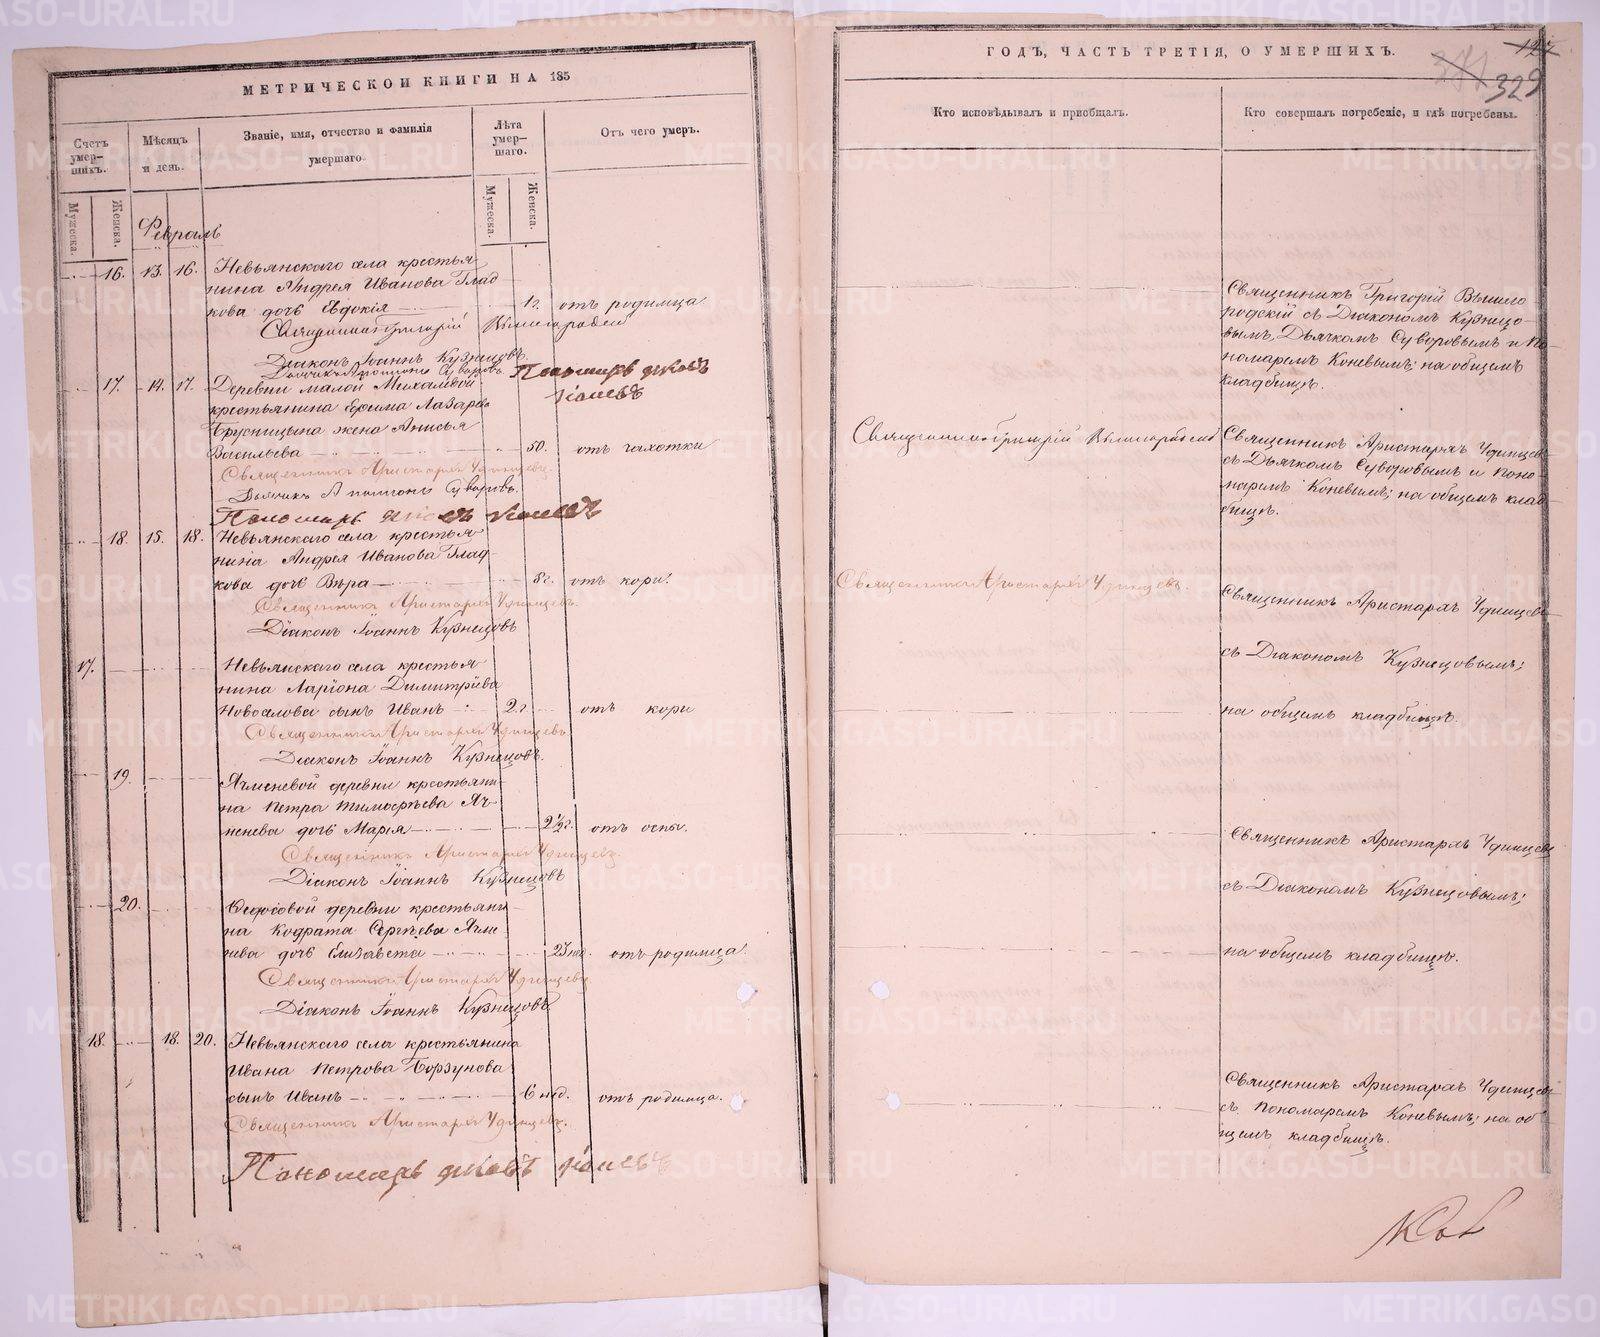 МЕТРИЧЕСКОЙ КНИГИ НА 185
Счетъ умер-шихъ.
Мѣсяцъ и день.
Званіе, имя, отчество и фамилія умершаго.
Лѣта умер-шаго.
Отъ чего умеръ.
Мужеска.
Женска.
Мужеска.
Женска.
Февраль
16. 13. 16. Невьянскаго села крестья-
нина Андрея Иванова Глад
кова дочь Евдокія 1 г. отъ родимца.
Священникъ Григорій Вышегородскій
Діаконъ Іоаннъ Кузнецовъ
Дьячекъ Аполлоній Суворовъ
Пономарь Яковъ
Коневъ
17. 14. 17. Деревни малой Михалевой
крестьянина Ефима Лазарева
Брусницына жена Анисья
Васильева 50. отъ чахотки
Священникъ Аристархъ Удинцевъ
Дьячекъ Аполлоній Суворовъ.
Пономарь Яковъ Коневъ
18. 15. 18. Невьянскаго села крестья-
нина Андрея Иванова Глад-
кова дочь Вѣра 8 г. отъ кори.
Священникъ Аристархъ Удинцевъ.
Діаконъ Іоаннъ Кузнецовъ
17. Невьянскаго села крестья-
нина Ларіона Димитріева
Новоселова сынъ Иванъ 2 г. отъ кори
Священникъ Аристархъ Удинцевъ
Діаконъ Іоаннъ Кузнецовъ.
19. Ячменевой деревни крестьяни-
на Петра Тимофѣева Яч-
менева дочь Марія 2 1/2 г. отъ оспы.
Священникъ Аристархъ Удинцевъ.
Діаконъ Іоаннъ Кузнецовъ
20. Федосовой деревни крестьяни-
на Кодрата Сергѣева Ячме-
нева дочь Елизавета нед. отъ родимца.
Священникъ Аристархъ Удинцевъ
Діаконъ Іоаннъ Кузнецовъ
18. 18. 20. Невьянскаго села крестьянина
Ивана Петрова Борзунова
сынъ Иванъ 6 нед. отъ родимца.
Священникъ Аристархъ Удинцевъ.
Пономарь Яковъ Коневъ
ГОДЪ, ЧАСТЬ ТРЕТІЯ, О УМЕРШИХЪ.
329
Кто исповѣдывалъ и пріобщалъ.
Кто совершалъ погребеніе, и гдѣ погребены.
Священникъ Григорій Вышего
родскій съ Діакономъ Кузнецо-
вымъ, Дьячкомъ Суворовымъ и По-
номаремъ Коневымъ; на общемъ
кладбищѣ.
Священникъ Григорій Вышегородскій
Священникъ Аристархъ Удинцевъ
съ Дьячкомъ Суворовымъ и Поно-
маремъ Коневымъ; на общемъ клад-
бищѣ.
Священникъ Аристархъ Удинцевъ.
Священникъ Аристархъ Удинцевъ
съ Діакономъ Кузнецовымъ;
на общемъ кладбищѣ.
Священникъ Аристархъ Удинцевъ
съ Діакономъ Кузнецовымъ;
на общемъ кладбищѣ.
Священникъ Аристархъ Удинцевъ
съ Пономаремъ Коневымъ; на об-
щемъ кладбищѣ.
METRIKI.GASO-URAL.RU